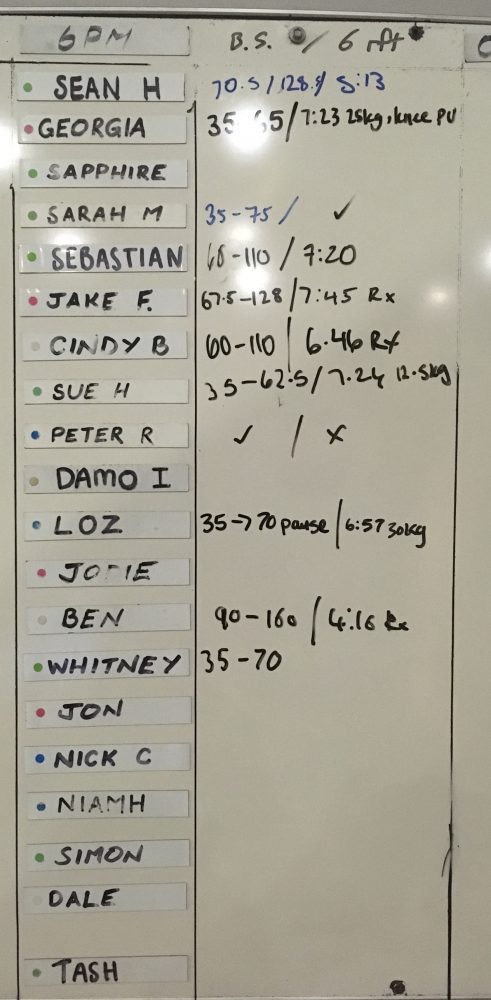 6PM B.S. / 6 rft
SEAN H 70.5/128.5/ 5:13
GEORGIA 35 65/7:23 25kg, knee PU
SAPPHIRE
SARAH M 35-75/ ✓
SEBASTIAN 68-110 / 7:20
JAKE F. 67.5-128/7:45 Rx
CINDY B 60-110 / 6.46 Rx
SUE H 35-62.5/7.24 12.5kg
PETER R ✓ / x
DAMO I
LOZ 35->70 pause / 6:57 30kg
JODIE
BEN 90-160 / 4:16 Rx
WHITNEY 35-70
JON
NICK C
NIAMH
SIMON
DALE
TASH